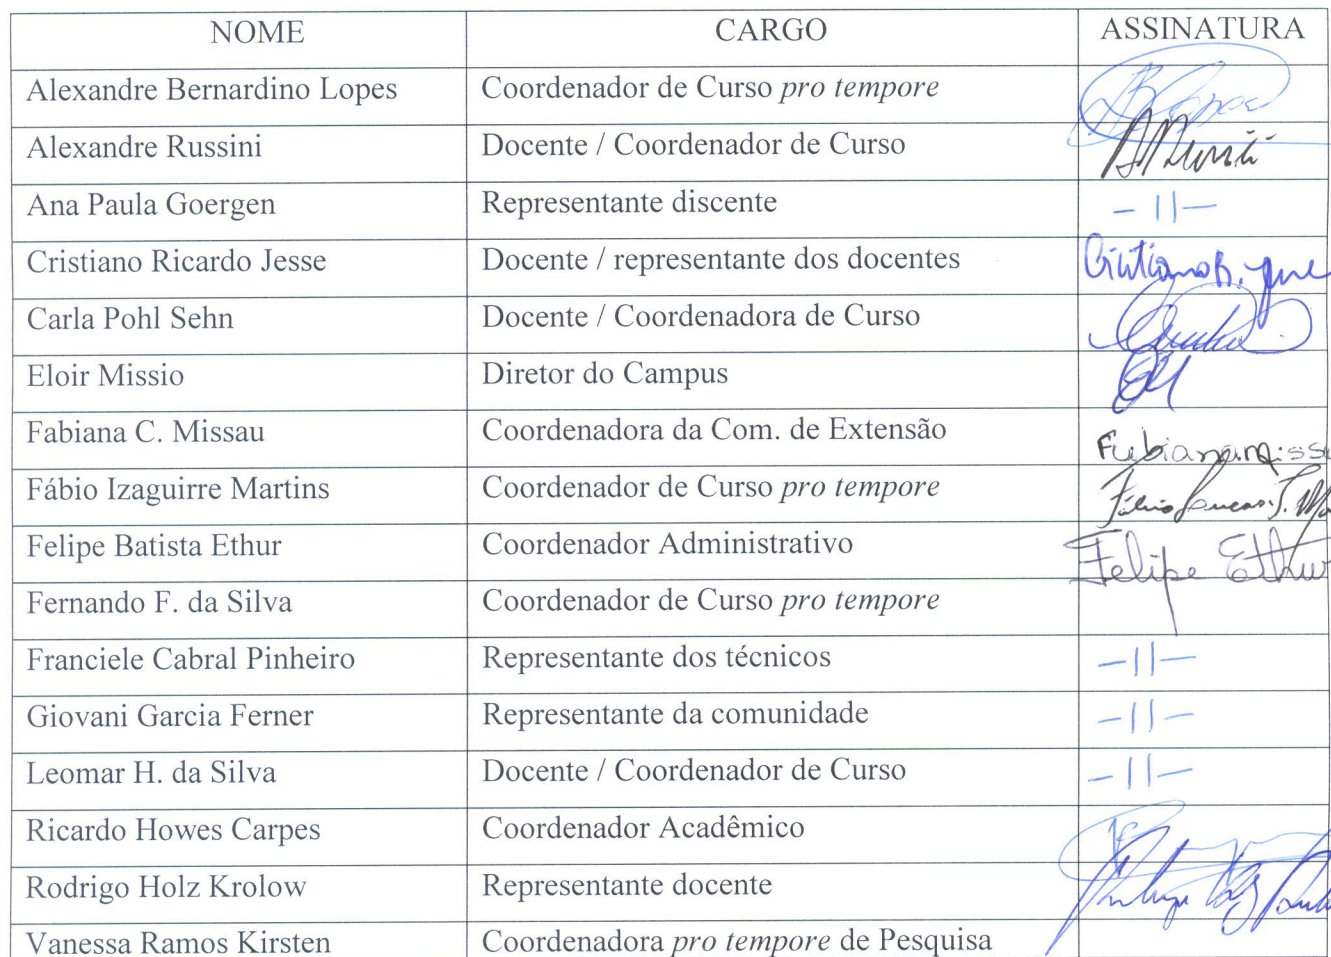 NOME CARGO ASSINATURA
Alexandre Bernardino Lopes Coordenador de Curso pro tempore
Alexandre Russini Docente / Coordenador de Curso
Ana Paula Goergen Representante discente - || -
Cristiano Ricardo Jesse Docente / representante dos docentes Cristiano R. Jesse
Carla Pohl Sehn Docente / Coordenadora de Curso
Eloir Missio Diretor do Campus
Fabiana C. Missau Coordenadora da Com. de Extensão
Fábio Izaguirre Martins Coordenador de Curso pro tempore
Felipe Batista Ethur Coordenador Administrativo Felipe Ethur
Fernando F. da Silva Coordenador de Curso pro tempore
Franciele Cabral Pinheiro Representante dos técnicos - || -
Giovani Garcia Ferner Representante da comunidade - || -
Leomar H. da Silva Docente / Coordenador de Curso - || -
Ricardo Howes Carpes Coordenador Acadêmico
Rodrigo Holz Krolow Representante docente
Vanessa Ramos Kirsten Coordenadora pro tempore de Pesquisa